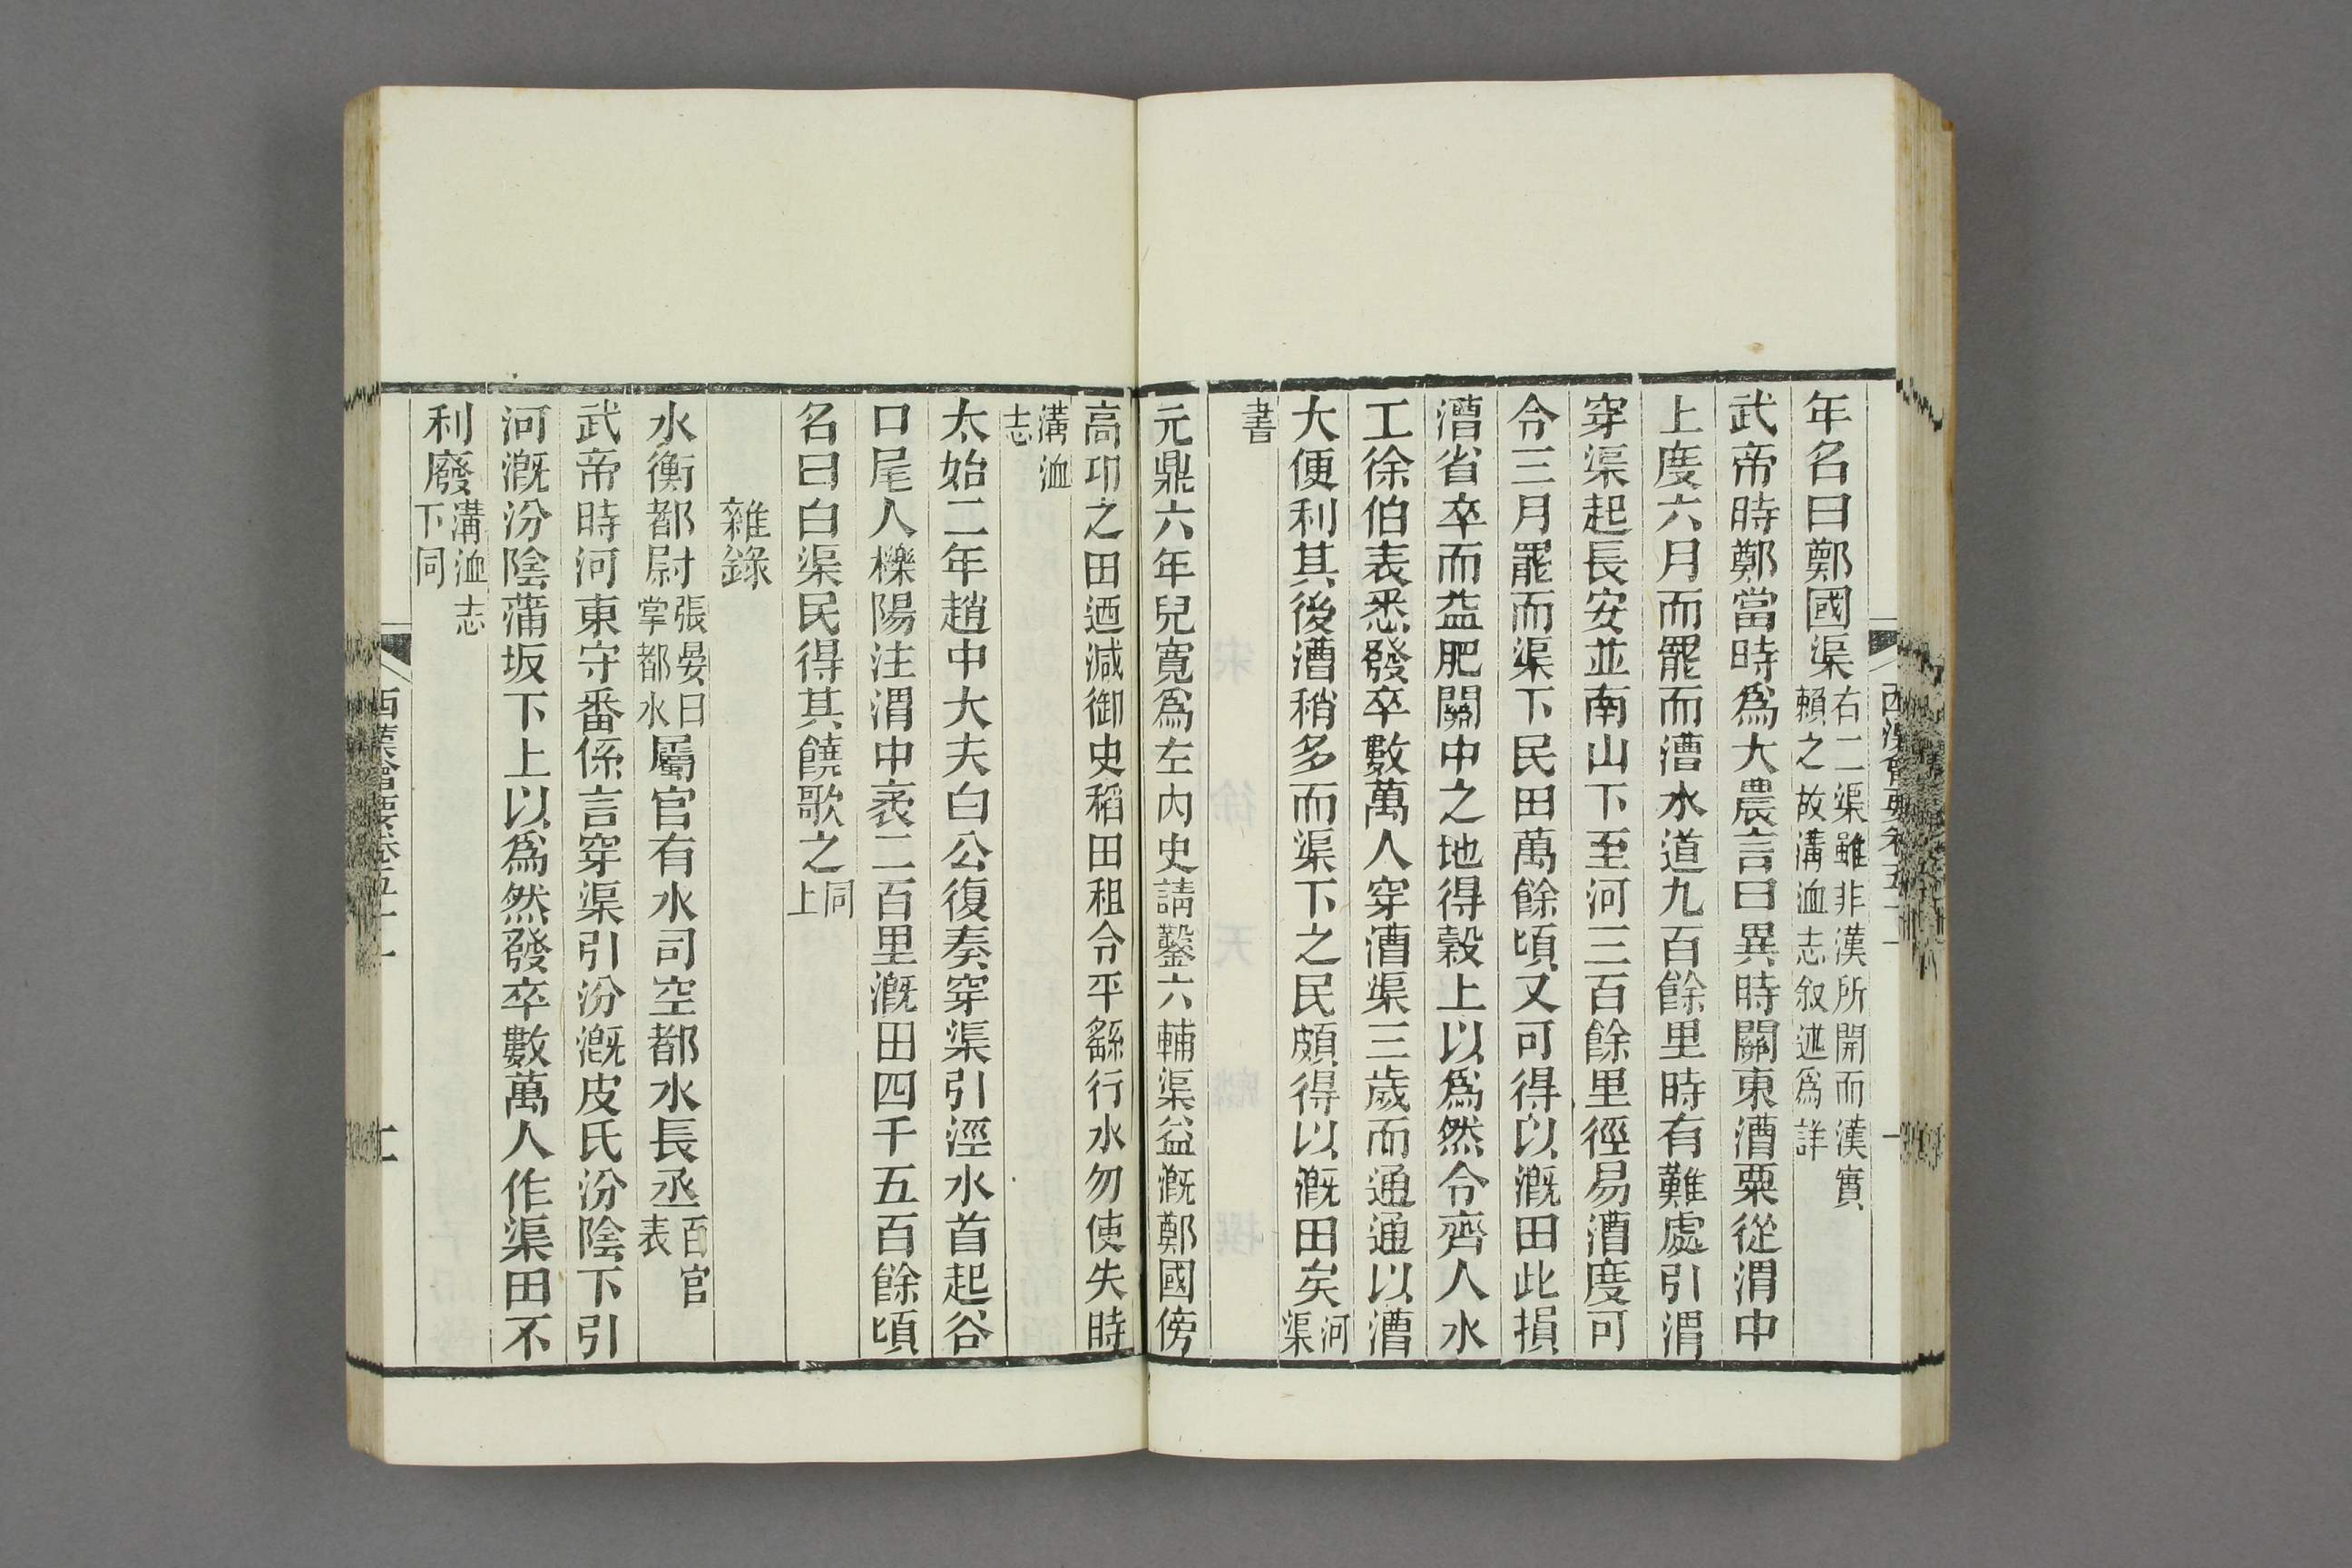 年名曰鄭國渠右二渠雖非漢所開而漢實賴之故溝洫志叙述爲詳
武帝時鄭當時爲大農言曰異時關東漕粟從渭中
上度六月而罷而漕水道九百餘里時有難處引渭
穿渠起長安並南山下至河三百餘里徑易漕度可
令三月罷而渠下民田萬餘頃又可得以漑田此損
漕省卒而益肥關中之地得穀上以爲然令齊人水
工徐伯表悉發卒數萬人穿漕渠三歲而通通以漕
大便利其後漕稍多而渠下之民頗得以漑田矣河渠
書
元鼎六年兒寬爲左內史請鑿六輔渠益漑鄭國傍
高卬之田迺減御史稻田租令平繇行水勿使失時
溝洫志
太始二年趙中大夫白公復奏穿渠引涇水首起谷
口尾入櫟陽注渭中袤二百里漑田四千五百餘頃
名曰白渠民得其饒歌之同上
雜錄
水衡都尉張晏曰掌都水屬官有水司空都水長丞百官表
武帝時河東守番係言穿渠引汾漑皮氏汾陰下引
河漑汾陰蒲坂下上以爲然發卒數萬人作渠田不
利廢溝洫志下同
西漢會要卷五十一